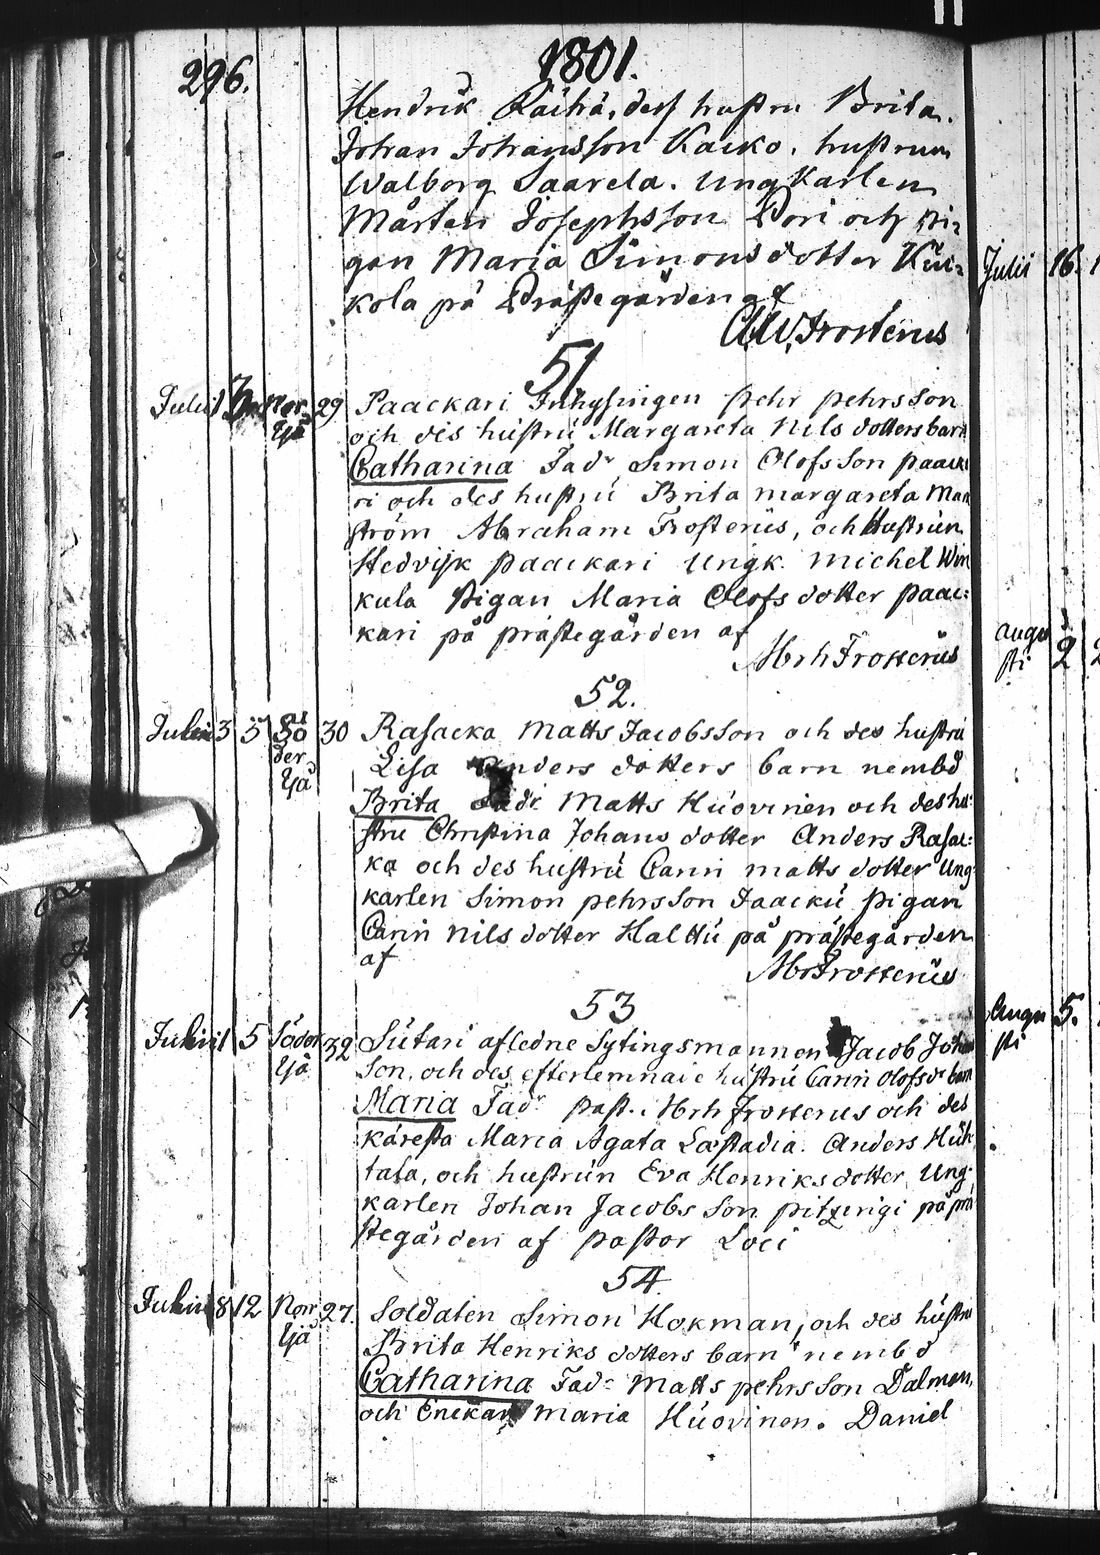 296.
1801.
Hendrik Räihä, dess hustru Brita.
Johan Johansson Kaiko. hustrun
Walborg Saarela. Ungkarlen
Mårten Josephsson Pori och Pi-
gan Maria Simonsdotter Kui-
kola på Prästegården af
Frosterus
51
Julii 1 Norr 29 Paackari Inhysingen Pehr pehrsson
Ijå och des hustru Margareta Nils dotters barn
Catharina Fadr Simon Olofsson paacka
ri och des hustru Brita margareta Man
ström Abraham Frosterus, och Hustrun
Hedvijk paackari Ungk. Michel Win
kula Pigan Maria Olofsdotter paac:
kari på prästegården af
Abrh Frosterus
52.
Julii 3 5 Sö 30 Rasacka Matts Jacobsson och des hustru
der Lisa Anders dotters barn nembd
Ijå
Brita Fadr Matts Huovinen och des hu:
stru Christina Johans dotter Anders Rasac:
ka och des hustru Carin matts dotter Ung
karlen Simon pehrsson Jaacku pigan
Carin nils dotter Halttu på prästegården
af Abr Frosterus
53
Julii 1 5 Söder 32 Sutari afledne Sytingsmannen Jacob Johan
Ijå Son, och des efterlemnade hustru Carin Olofs dr barn
Maria Fadr past. Abrh Frosterus och des
käresta Maria Agata Læstadia. Anders Huh
tala, och hustrun Eva Henriksdotter, Ung
karlen Johan Jacobs Son på prä
stegården af pastor Loci
54
Julii 8 12 Norr 27. Soldaten Simon Hokman, och des hustru
Ijå Brita Henriks dotters barn nembd
Catharina Fadr Matts pehrsson Dalman,
och Enckan Maria Huovinen. Daniel
Julii 16.
Augu
sti 2
Augu 5.
sti